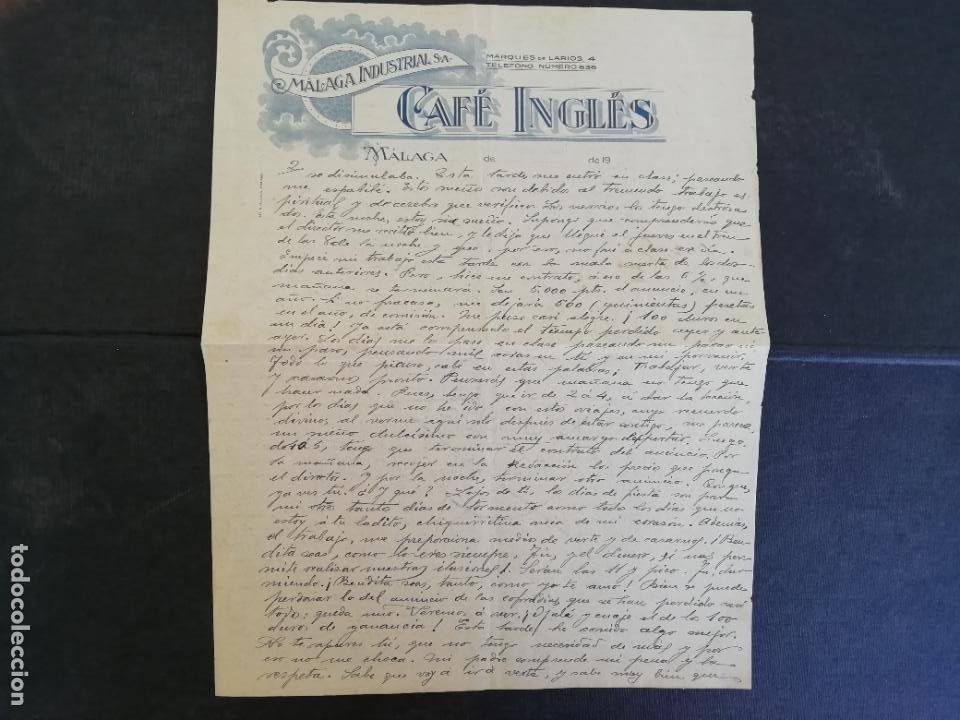 MÁLAGA INDUSTRIAL S.A.
MARQUES DE LARIOS 4
TELEFONO NUMERO 636
CAFÉ INGLÉS
MÁLAGA de de 19
se disimulaba. Esta tarde me entró en clase; paseando
me espabilé. Estos sueños son debidos al tremendo trabajo es-
piritual y de cerebro que verifico. Los nervios los tengo destroza-
dos. Esta noche, estoy sin sueño. Supongo que comprenderás que
el director me recibió bien, y le dije que llegué el jueves en el tren
de las 8 de la noche y que por eso, no fui a clase ese día.
Empecé mi trabajo esta tarde con la mala suerte de los dos
días anteriores. Pero, hice un contrato, a eso de las 6 ½, que
mañana se terminará. Son 5.000 pts. el anuncio, en un
año. Si no fracasa, me dejará 500 (quinientas) pesetas
en el año, de comisión. Me puso casi alegre. ¡100 duros en
un día! Ya está compensado el tiempo perdido ayer y ante-
ayer. Los días me los paso en clase paseando
un paso, pensando mil cosas en ti y en mi porvenir.
Todo lo que pienso, cabe en estas palabras: Trabajar, verte
y casarnos pronto. Pensarás que mañana no tengo que
hacer nada. Pues, tengo que ir de 2 a 4, a dar la lección,
por los días que no he ido con estos viajes, cuyo recuerdo
divino, al verme aquí solo después de estar contigo, me parece
un sueño dulcísimo con muy amargo despertar. Luego,
de 4 a 5, tengo que terminar el contrato del anuncio. Por
la mañana, recoger en la Redacción los precios que ponga
el director. Y por la noche, terminar otro anuncio. Conque,
ya ves tú. ¿Y qué? Lejos de ti, los días de fiesta son para
mí otros tantos días de tormento como todos los días que no
estoy a tu ladito, chiquirritina mía de mi corazón. Además,
el trabajo, me proporciona medios de verte y de casarnos. ¡Ben-
dita seas, como lo eres siempre, tú, y el dinero, si nos per-
mite realizar nuestras ilusiones! Serán las 11 y pico. Tú, dur-
miendo. ¡Bendita seas, tanto, como yo te amo! Bien se puede
perdonar lo del anuncio de las cofradías, que se han perdido casi
todos: queda uno. Veremos a ver. ¡Ojalá y cuaje el de los 100
duros de ganancia! Esta tarde, he comido algo mejor.
No te apures tú, que no tengo necesidad de nada y por
eso no me choca. Mi padre comprende mi pena y la
respeta. Sabe que voy a ir a verte, y sabe muy bien que
todocoleccion